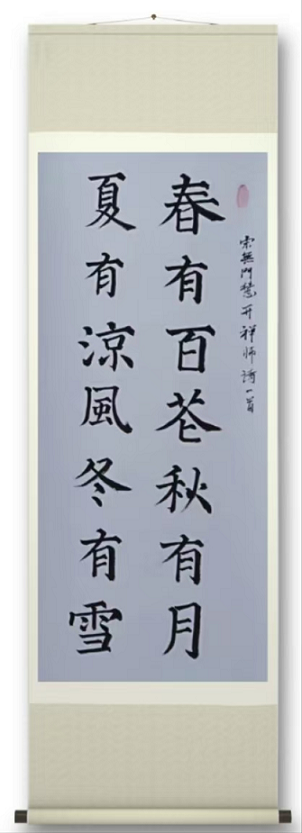 宗無門慧开禅师诗一首
春有百花秋有月
夏有涼風冬有雪